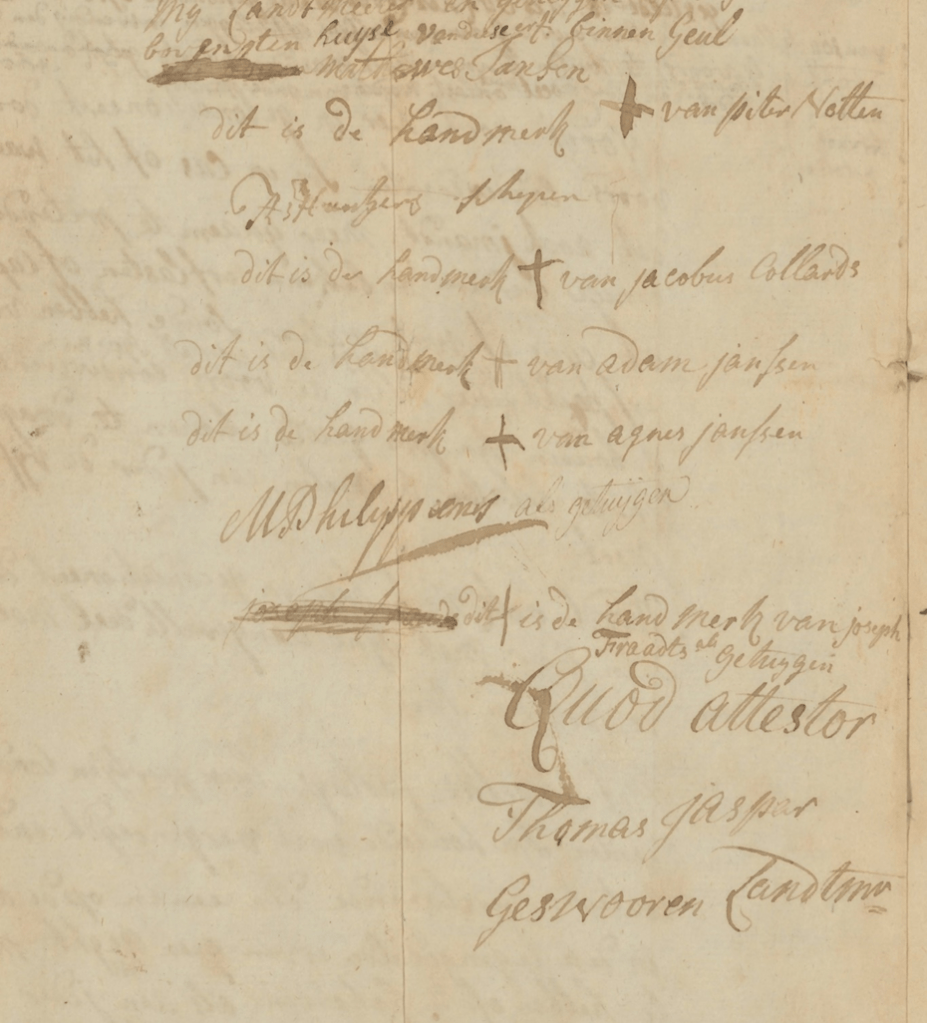 my Landtmeter en getuijgen
huijse vandersert. binnen Geul
Mathewes Jansen
dit is de handmerk + van piter Notten
schepen
dit is de handmerk + van jacobus Collards
dit is de handmerk + van adam janssen
dit is de handmerk + van agnes janssen
als getuijgen
dit + is de handmerk van joseph
Fraadts als getuygen
Quod attestor
Thomas jaspar
Geswooren Landtmr